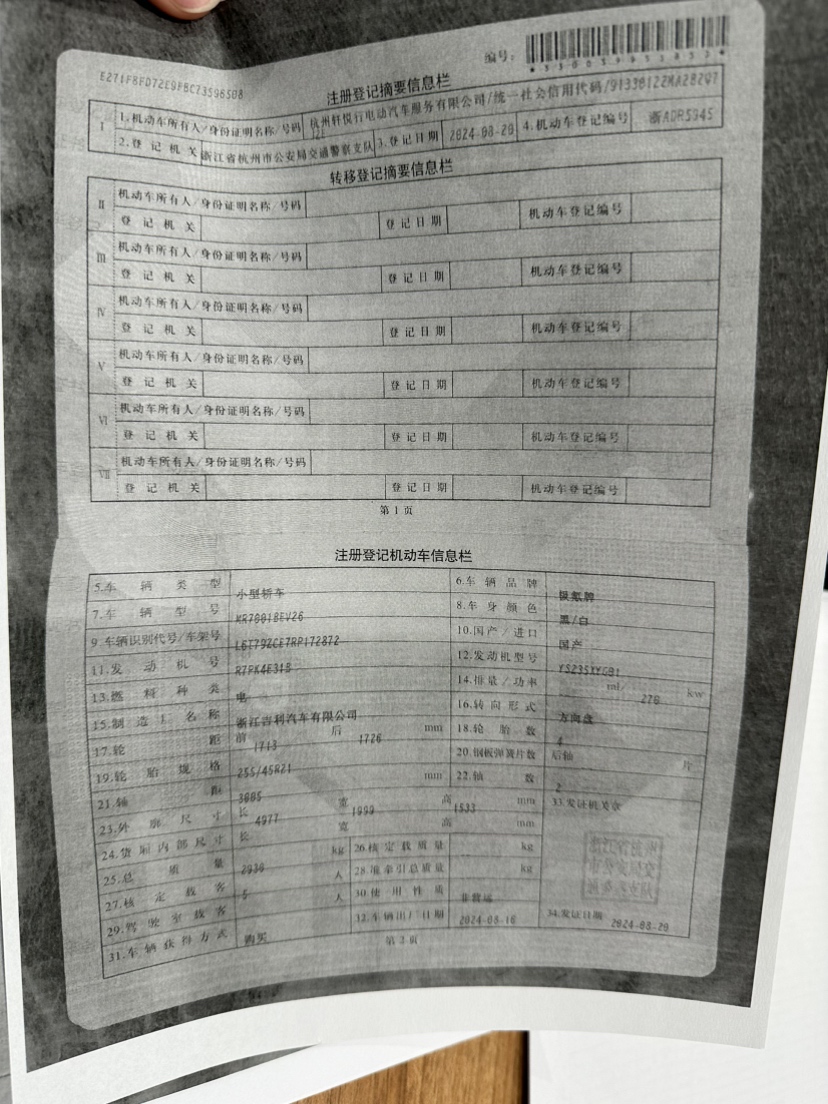 编号：
E271F8FD72E9FBC73596508
注册登记摘要信息栏
I
1.机动车所有人/身份证明名称/号码
杭州轩悦行电动汽车服务有限公司/统一社会信用代码/91330122MA282Q7
2.登记机关
浙江省杭州市公安局交通警察支队
3.登记日期
2024-08-20
4.机动车登记编号
浙ADR5945
转移登记摘要信息栏
II
机动车所有人/身份证明名称/号码
登记机关
登记日期
机动车登记编号
III
机动车所有人/身份证明名称/号码
登记机关
登记日期
机动车登记编号
IV
机动车所有人/身份证明名称/号码
登记机关
登记日期
机动车登记编号
V
机动车所有人/身份证明名称/号码
登记机关
登记日期
机动车登记编号
VI
机动车所有人/身份证明名称/号码
登记机关
登记日期
机动车登记编号
VII
机动车所有人/身份证明名称/号码
登记机关
登记日期
机动车登记编号
第 1 页
注册登记机动车信息栏
5.车辆类型
小型轿车
6.车辆品牌
极氪牌
7.车辆型号
8.车身颜色
黑/白
9.车辆识别代号/车架号
L6T79ZCE7RP172872
10.国产/进口
国产
11.发动机号
12.发动机型号
13.燃料种类
电
14.排量/功率
ml/
270
kw
15.制造厂名称
浙江吉利汽车有限公司
16.转向形式
方向盘
17.轮距
前
1713
后
1726
mm
18.轮胎数
4
19.轮胎规格
255/45R21
20.钢板弹簧片数
后轴
片
21.轴距
3005
mm
22.轴数
2
23.外廓尺寸
长
4977
宽
1999
高
1533
mm
33.发证机关章
24.货厢内部尺寸
长
宽
高
mm
25.总质量
2930
kg
26.核定载质量
kg
27.核定载客
5
人
28.准牵引总质量
kg
29.驾驶室载客
人
30.使用性质
非营运
31.车辆获得方式
购买
32.车辆出厂日期
2024-08-16
34.发证日期
2024-08-20